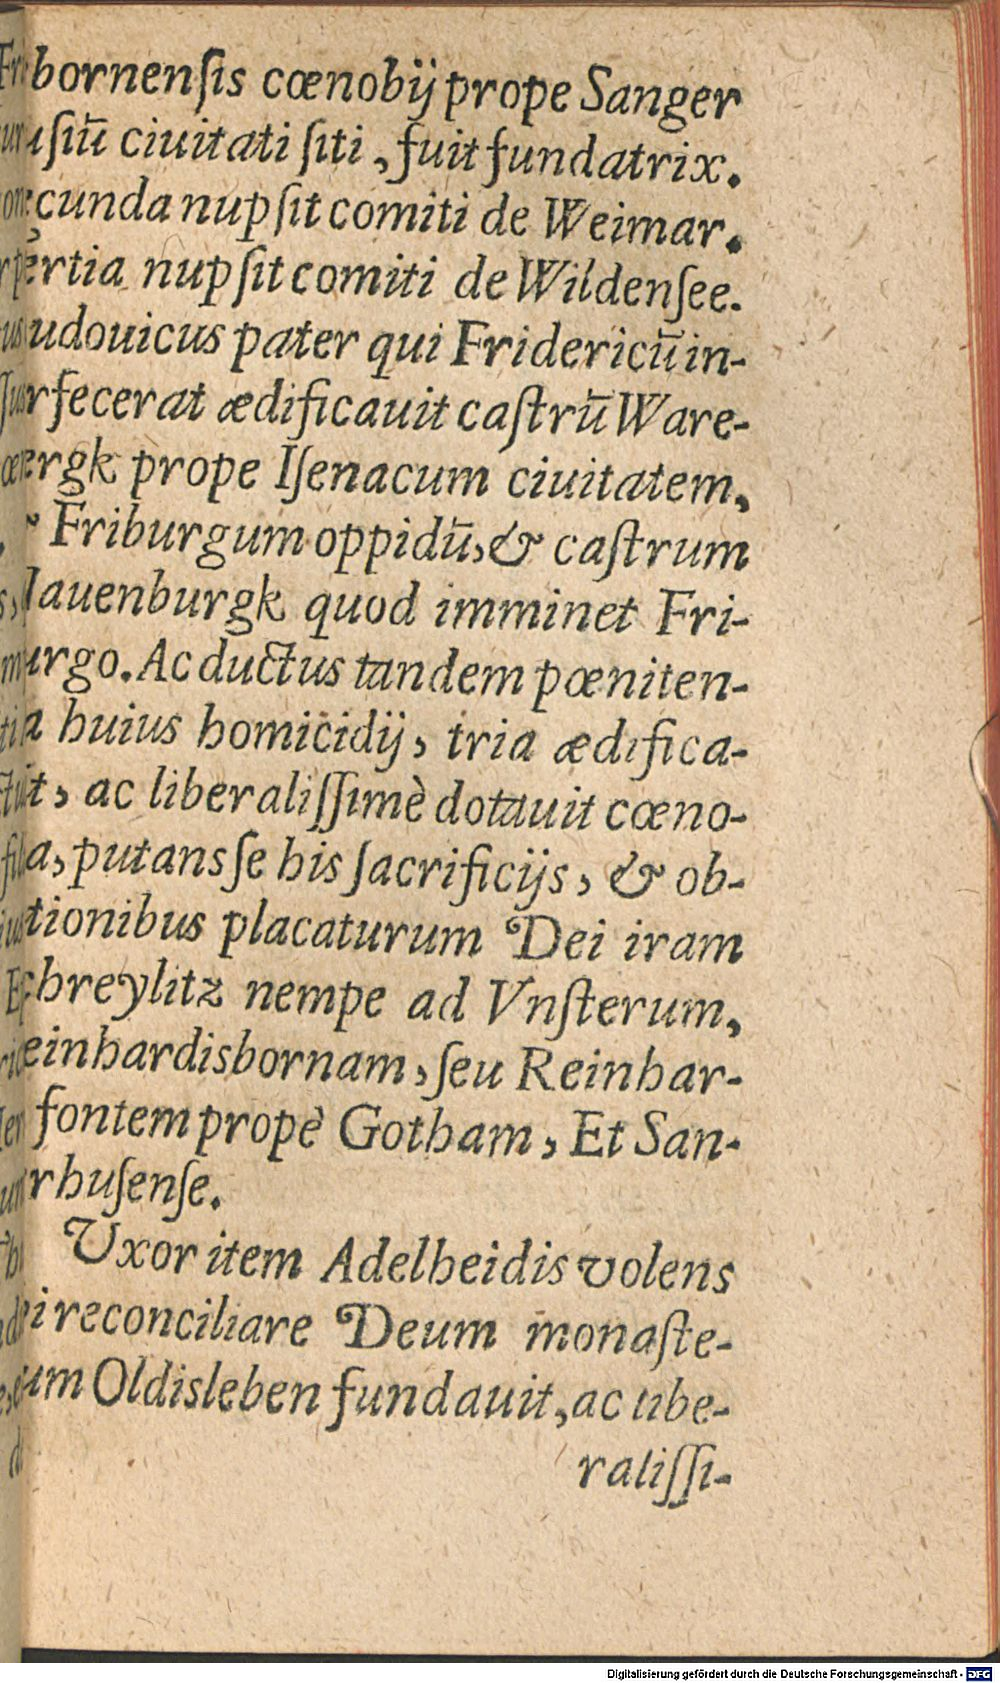 bornenſis cœnobij prope Sanger
ſiū ciuitati ſiti, fuit fundatrix.
cunda nupſit comiti de Weimar.
ertia nupſit comiti de Wildenſee.
udouicus pater qui Fridericū in-
rfecerat ædificauit caſtrū Ware-
ergk prope Iſenacum ciuitatem,
Friburgum oppidū, & caſtrum
auenburgk quod imminet Fri-
urgo. Ac ductus tandem pœniten-
a huius homicidij, tria ædifica-
it, ac liberaliſſimè dotauit cœno-
a, putans ſe his ſacrificijs, & ob-
tionibus placaturum Dei iram
breylitz nempe ad Vnſterum,
einhardisbornam, ſeu Reinhar-
fontem propè Gotham, Et San-
rhuſenſe.
Vxor item Adelheidis volens
i reconciliare Deum monaſte-
um Oldisleben fundauit, ac libe-
raliſſi-
Digitalisierung gefördert durch die Deutsche Forschungsgemeinschaft - DFG